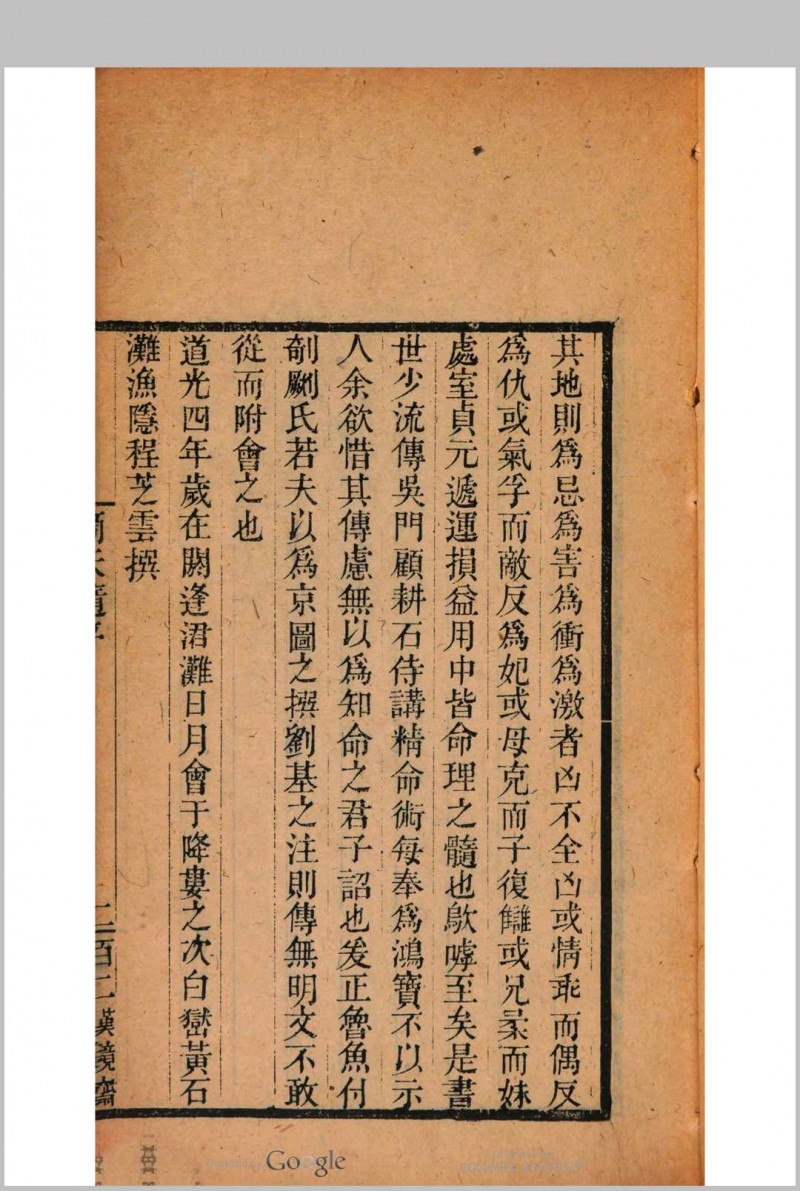 其地則爲忌爲害爲衝爲激者凶不全凶或情乖而偶反
爲仇或氣孚而敵反爲妃或母克而子復讎或兄柔而妹
處室貞元遞運損益用中皆命理之髓也歟嘑至矣是書
世少流傳吳門顧耕石侍講精命術每奉爲鴻寶不以示
人余欲惜其傳慮無以爲知命之君子詔也爰正魯魚付
剞劂氏若夫以爲京圖之撰劉基之注則傳無明文不敢
從而附會之也
道光四年歲在閼逢涒灘日月會于降婁之次白嶽黃石
灘漁隱程芝雲撰
二百二漢鏡齋
Google